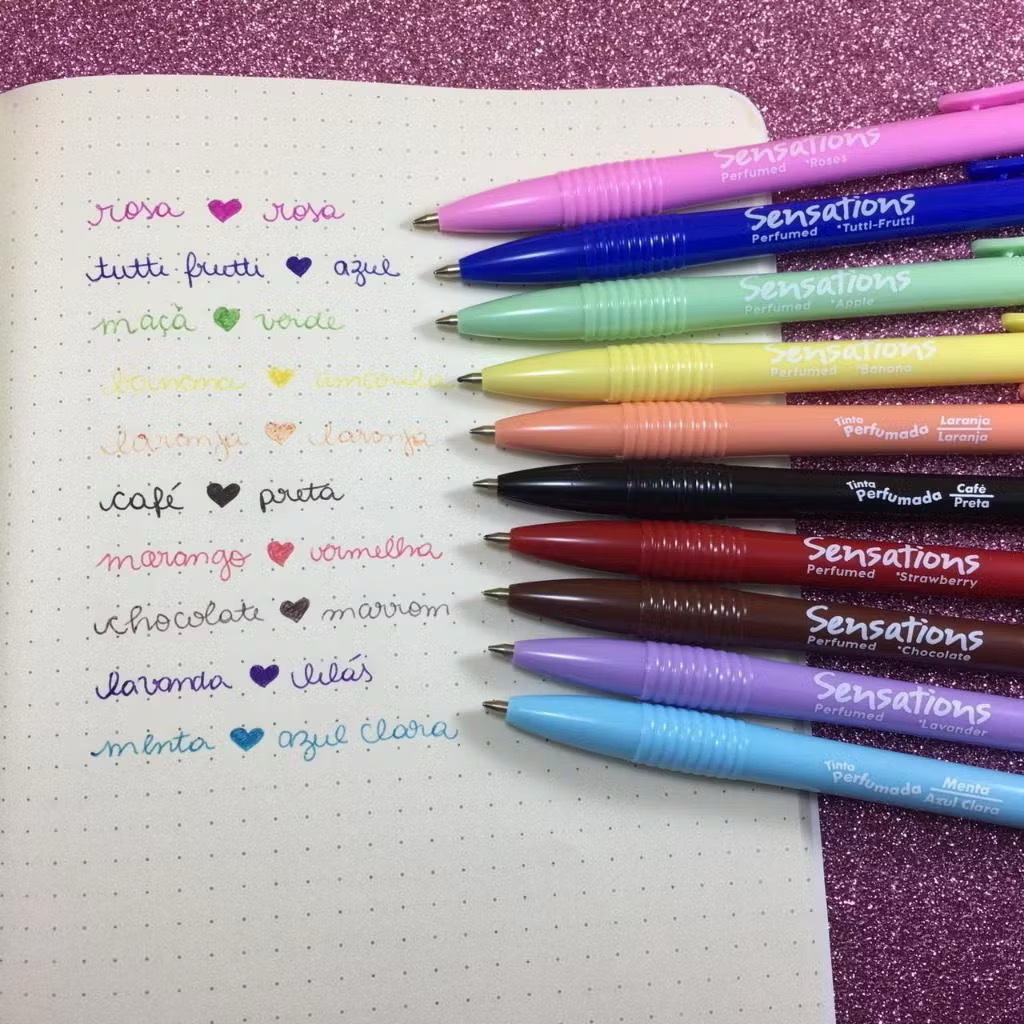 rosa rosa
tutti frutti azul
maçã verde
banana amarela
laranja laranja
café preta
morango vermelha
chocolate marrom
lavanda lilás
menta azul clara
Sensations
Perfumed *Roses
Sensations
Perfumed *Tutti-Frutti
Sensations
Perfumed *Apple
Sensations
Perfumed *Banana
Tinta Perfumada Laranja
Laranja
Tinta Perfumada Café
Preta
Sensations
Perfumed *Strawberry
Sensations
Perfumed *Chocolate
Sensations
Perfumed *Lavander
Tinta Perfumada Menta
Azul Clara